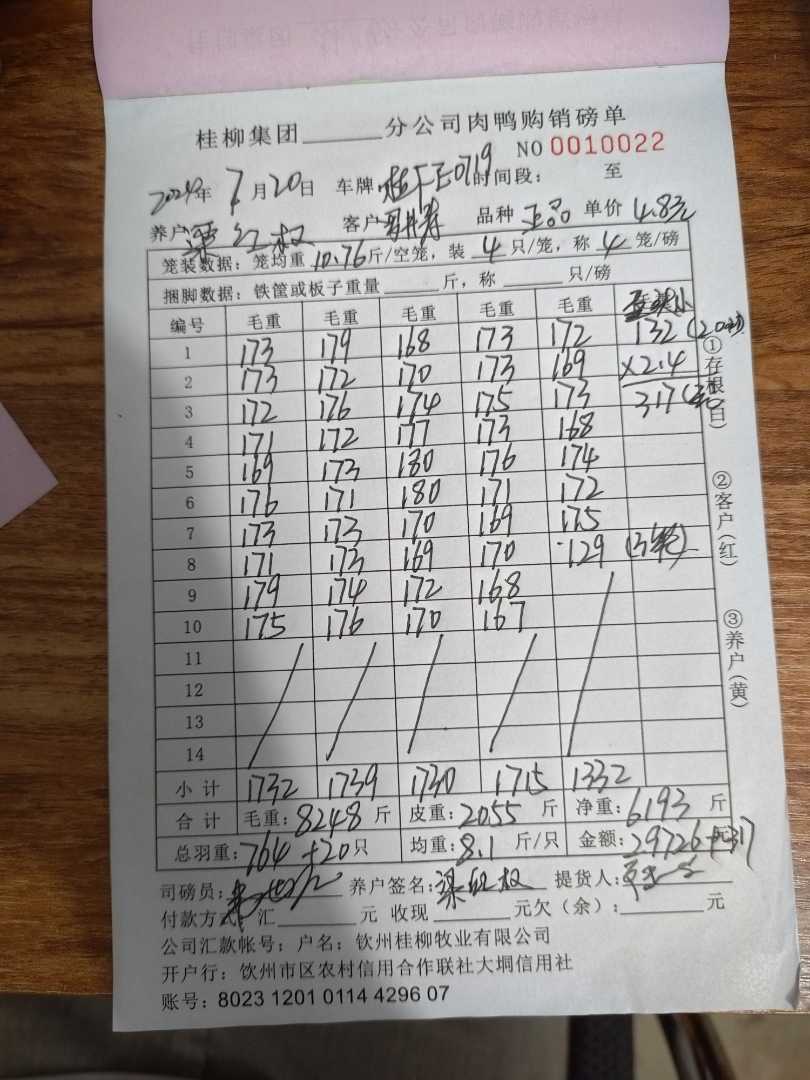 桂柳集团______分公司肉鸭购销磅单
NO 0010022
2024年 7月20日 车牌 桂 E0719 时间段： 至
养户 梁红权 客户 品种 正品 单价 4.8元
笼装数据：笼均重 10.76 斤/空笼，装 4 只/笼，称 4 笼/磅
捆脚数据：铁筐或板子重量______斤，称______只/磅
编号 毛重 毛重 毛重 毛重 毛重
1 173 179 168 173 172 132 (20
2 173 172 170 173 169 ×2.4
3 172 176 174 175 173 317
4 171 172 177 173 168
5 169 173 180 176 174
6 176 171 180 171 172
7 173 173 170 169 175
8 171 173 169 170 129 (3笼)
9 179 174 172 168
10 175 176 170 167
11
12
13
14
小计 1732 1739 1730 1715 1332
合计 毛重：8248 斤 皮重：2055 斤 净重：6193 斤
总羽重：764+20 只 均重：8.1 斤/只 金额：29726+317 元
司磅员： 养户签名：梁红权 提货人：
付款方式 汇______元 收现______元欠（余）：______元
公司汇款帐号；户名：钦州桂柳牧业有限公司
开户行：钦州市区农村信用合作联社大垌信用社
账号：8023 1201 0114 4296 07
①存根（白）
②客户（红）
③养户（黄）